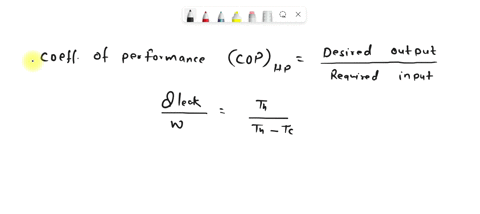 . Coeff. of performance (COP)HP = Desired output / Required input
Qleak / W = Th / Th - Tc